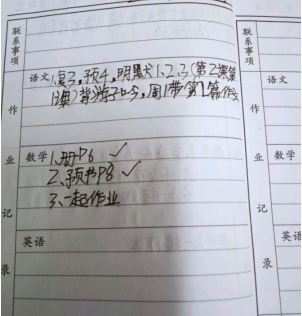 联系事项
语文 1.复3,预4,明默1.2.3(第2课第
1课)背游子吟,周1带第1篇作文
作
业 数学 1.册P6 ✓
2.预书P8 ✓
3.一起作业
记
英语
录
联系事项
语文
作
业 数学
记
英语
录